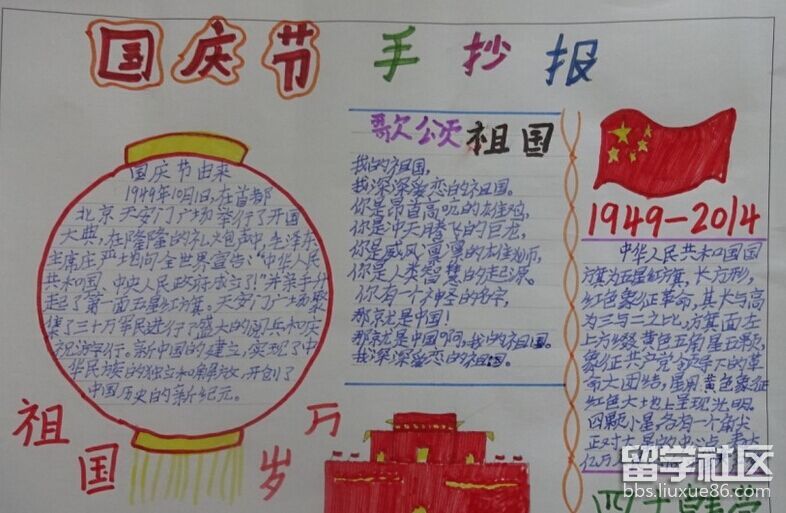 国庆节手抄报
国庆节由来
1949年10月1日,在首都
北京天安门广场举行了开国
大典,在隆隆的礼炮声中,毛泽东
主席庄严地向全世界宣告:“中华人民
共和国、中央人民政府成立了!”并亲手升
起了第一面五星红旗。天安门广场聚
集了三十万军民进行了盛大的阅兵和庆
祝游行。新中国的建立,实现了中
华民族的独立和解放,开创了
中国历史的新纪元。
祖国万岁
歌颂祖国
我的祖国,
我深深爱恋的祖国。
你是昂首高吭的雄鸡,
你是冲天腾飞的巨龙,
你是威风凛凛的雄狮,
你是人类智慧的起源。
你有一个神圣的名字,
那就是中国!
那就是中国啊,我的祖国。
我深深爱恋的祖国。
1949-2014
中华人民共和国国
旗为五星红旗,长方形,
红色象征革命,其长与高
为三与二之比,旗面左
上方缀黄色五角星五颗,
象征共产党领导下的革
命大团结,星用黄色象征
红色大地上呈现光明。
四颗小星各有一个角尖
正对大星的中心点,
亿万
留学社区
bbs.liuxue86.com